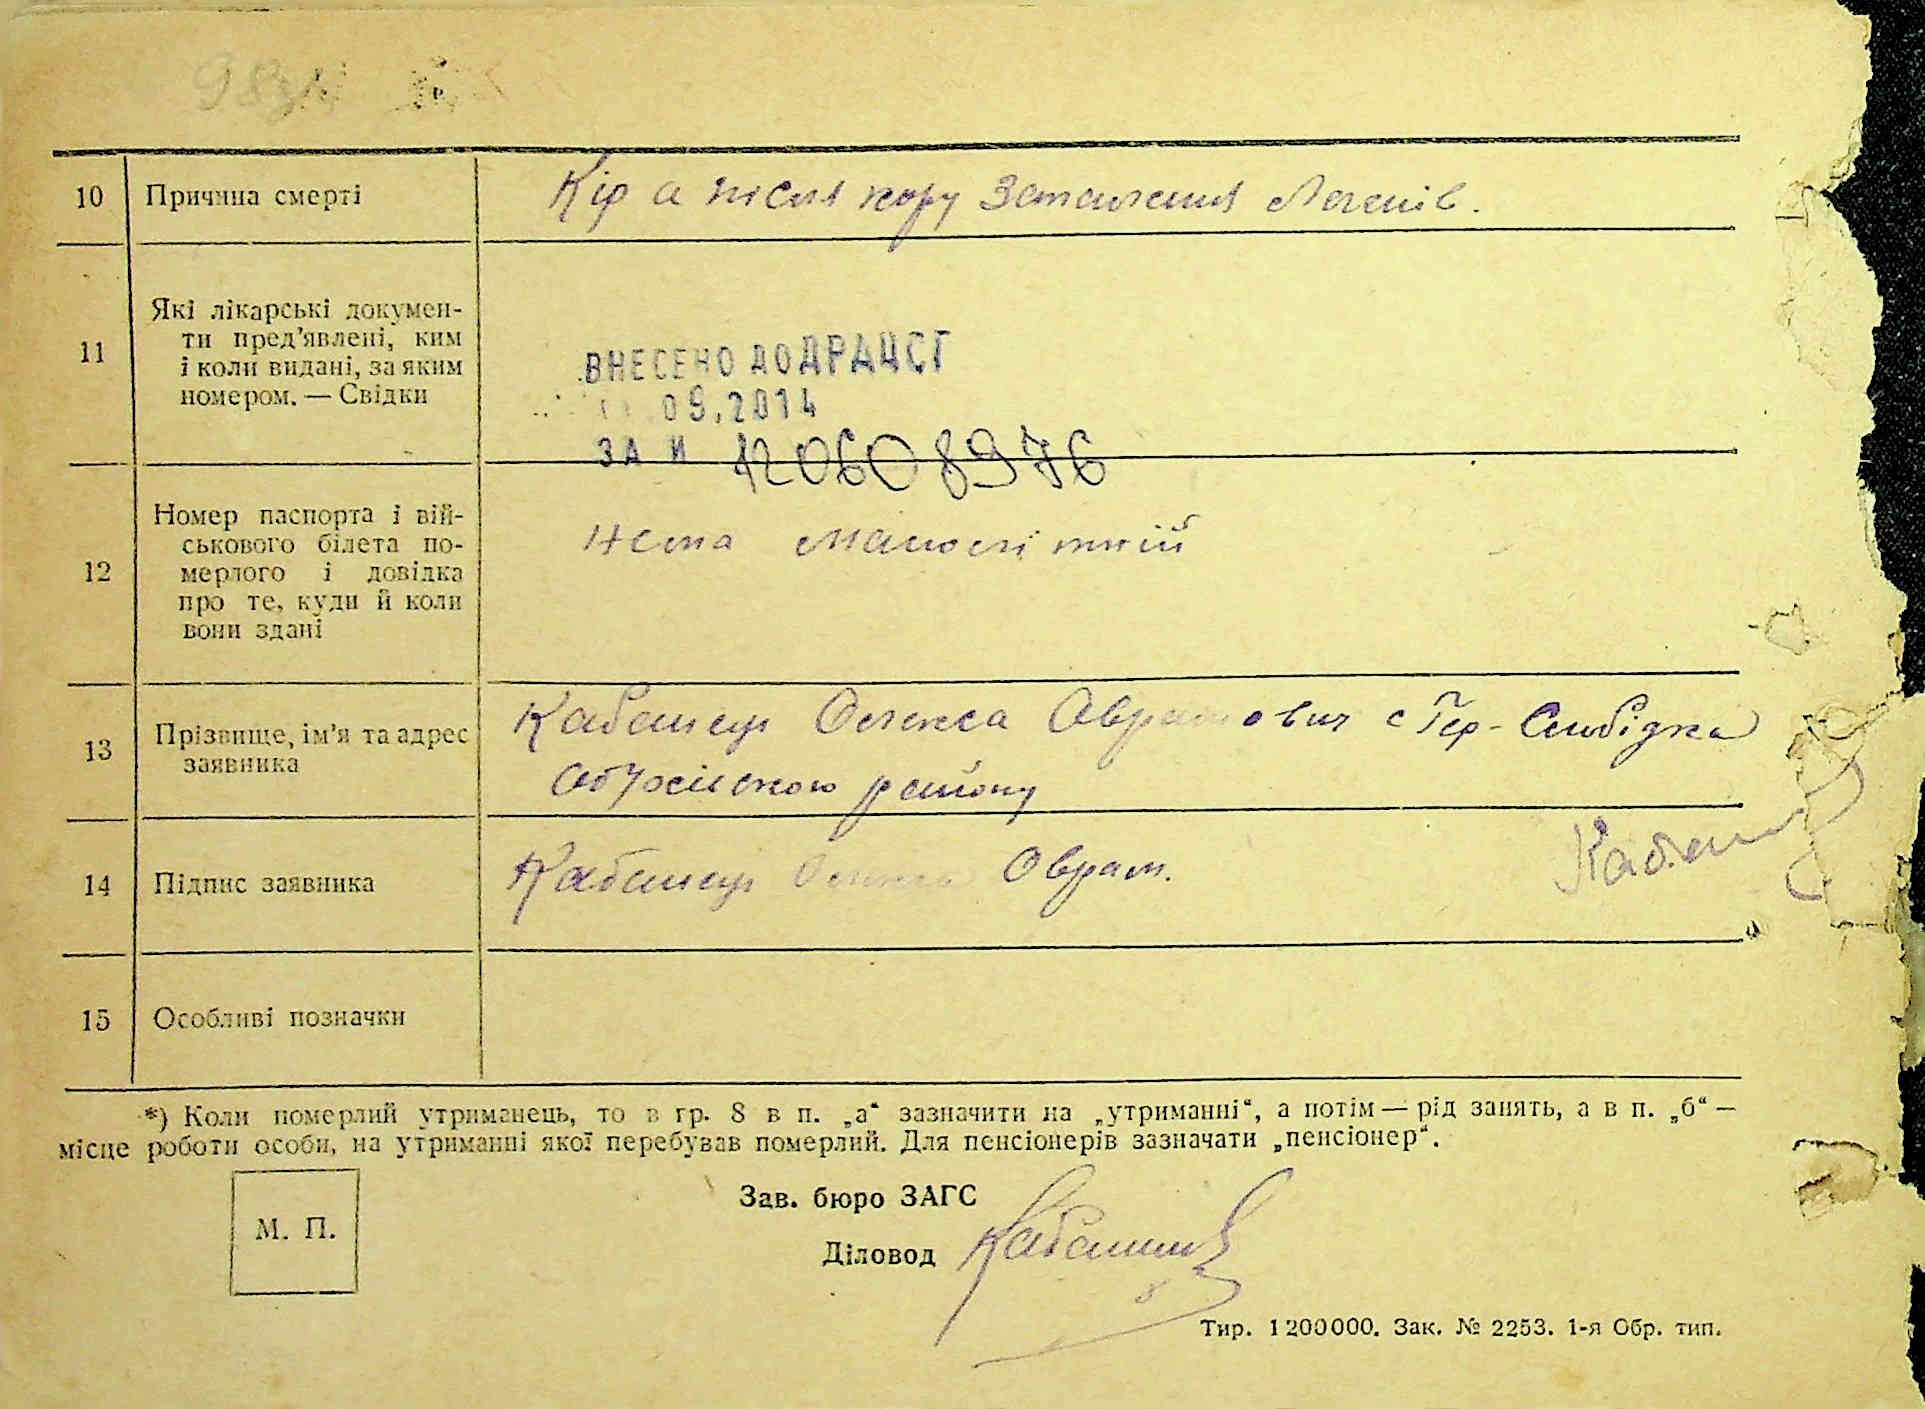 10 Причина смерті Кір а після кору Запалення Легенів.
11 Які лікарські докумен-
ти пред'явлені, ким
і коли видані, за яким
номером. — Свідки
ВНЕСЕНО ДО ДРАЦСГ
09.2014
ЗА № 120608976
12 Номер паспорта і вій-
ськового білета по-
мерлого і довідка
про те, куди й коли
вони здані
Нема малолітній
13 Прізвище, ім'я та адрес
заявника
Кабанець Олекса Аврамович с Гер-Слобідка
району
14 Підпис заявника Кабанець Олекса Аврам.
15 Особливі позначки
*) Коли померлий утриманець, то в гр. 8 в п. „а“ зазначити на „утриманні“, а потім — рід занять, а в п. „б“ —
місце роботи особи, на утриманні якої перебував померлий. Для пенсіонерів зазначати „пенсіонер“.
М. П.
Зав. бюро ЗАГС
Діловод
Тир. 1200000. Зак. № 2253. 1-я Обр. тип.